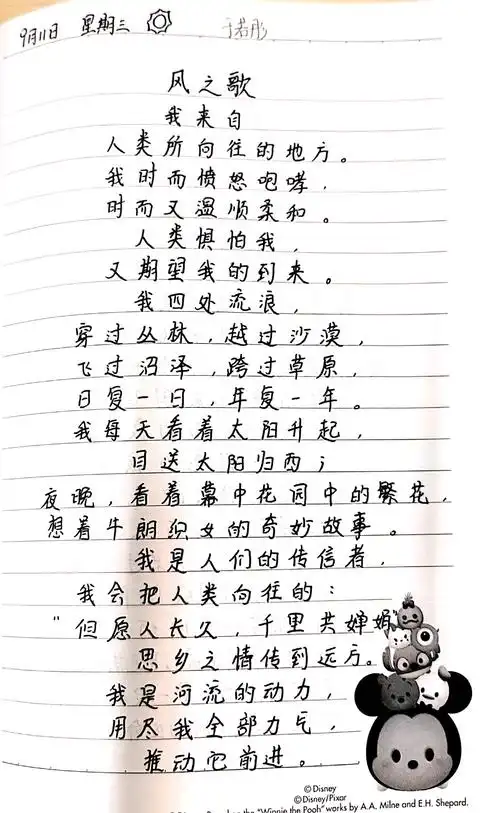 9月11日 星期三 于若彤
风之歌
我来自
人类所向往的地方。
我时而愤怒咆哮，
时而又湿顺柔和。
人类惧怕我，
又期望我的到来。
我四处流浪，
穿过丛林，越过沙漠，
飞过沼泽，跨过草原，
日复一日，年复一年。
我每天看着太阳升起，
目送太阳归西；
夜晚，看着幕中花园中的繁花，
想着牛朗织女的奇妙故事。
我是人们的传信者，
我会把人类向往的：
“但愿人长久，千里共婵娟”
思乡之情传到远方。
我是河流的动力，
用尽我全部力气，
推动它前进。
©Disney
©Disney/Pixar
"Winnie the Pooh" works by A.A. Milne and E.H. Shepard.